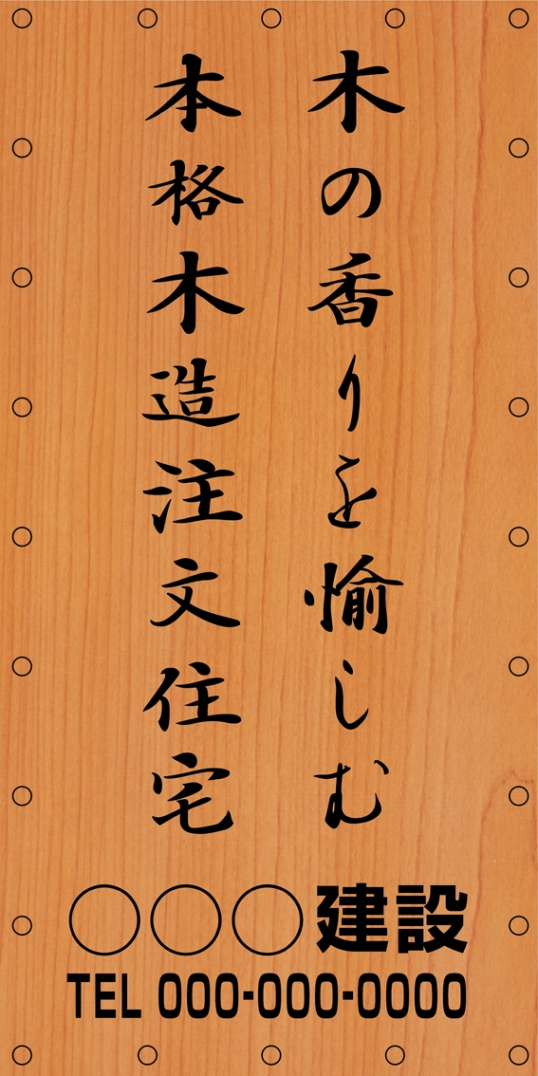 木の香りを愉しむ
本格木造注文住宅
○○○建設
TEL 000-000-0000